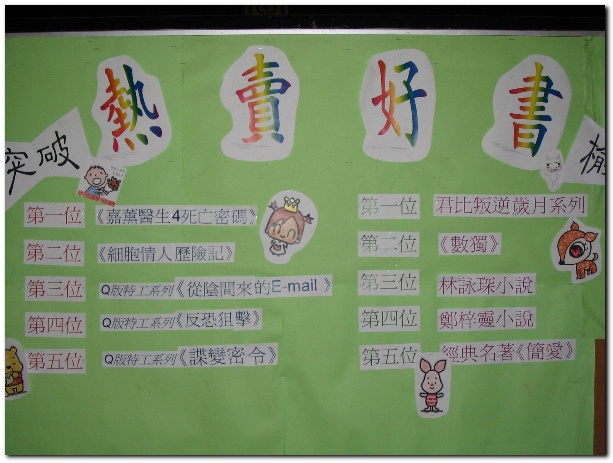 熱賣好書
突破
第一位 《嘉薰醫生4死亡密碼》
第二位 《細胞情人歷險記》
第三位 Q版特工系列《從陰間來的E-mail》
第四位 Q版特工系列《反恐狙擊》
第五位 Q版特工系列《諜變密令》
第一位 君比叛逆歲月系列
第二位 《數獨》
第三位 林詠琛小說
第四位 鄭梓靈小說
第五位 經典名著《簡愛》